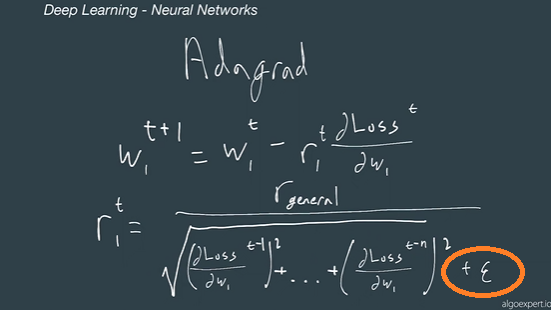 Deep Learning - Neural Networks
Adagrad
w₁ᵗ⁺¹ = w₁ᵗ - r₁ᵗ ∂Lossᵗ / ∂w₁
r₁ᵗ = r_general / √((∂Loss/∂w₁ ᵗ⁻¹)² + ... + (∂Loss/∂w₁ ᵗ⁻ⁿ)²) + ε
algoexpert.io